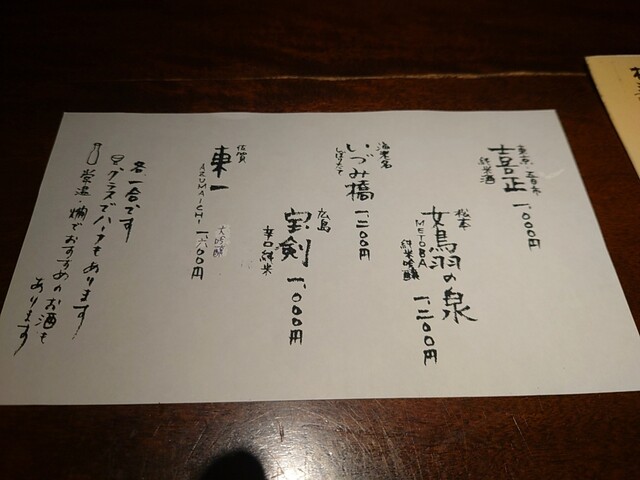 東京 青木
喜正
純米酒
一、〇〇〇円
松本
女鳥羽の泉
METOBA
純米吟醸
一、二〇〇円
海老名
いづみ橋
しぼりたて
一、二〇〇円
広島
宝剣
辛口純米
一、〇〇〇円
佐賀
東一
AZUMAICHI
大吟醸
一、六〇〇円
各、一合です
グラスでハーフもあります!
常温・燗でおすすめのお酒も
あります